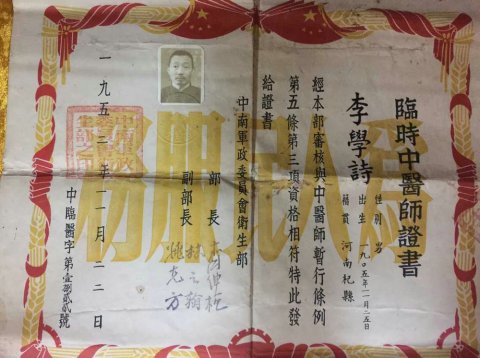 臨時中醫師證書
李學詩
性別 男
出生 一九〇五年一月二五日
籍貫 河南杞縣
經本部審核與中醫師暫行條例
第五條第三項資格相符特此發
給證書
中南軍政委員會衛生部
部長
副部長
一九五二年
中臨醫字第壹捌貳貳號